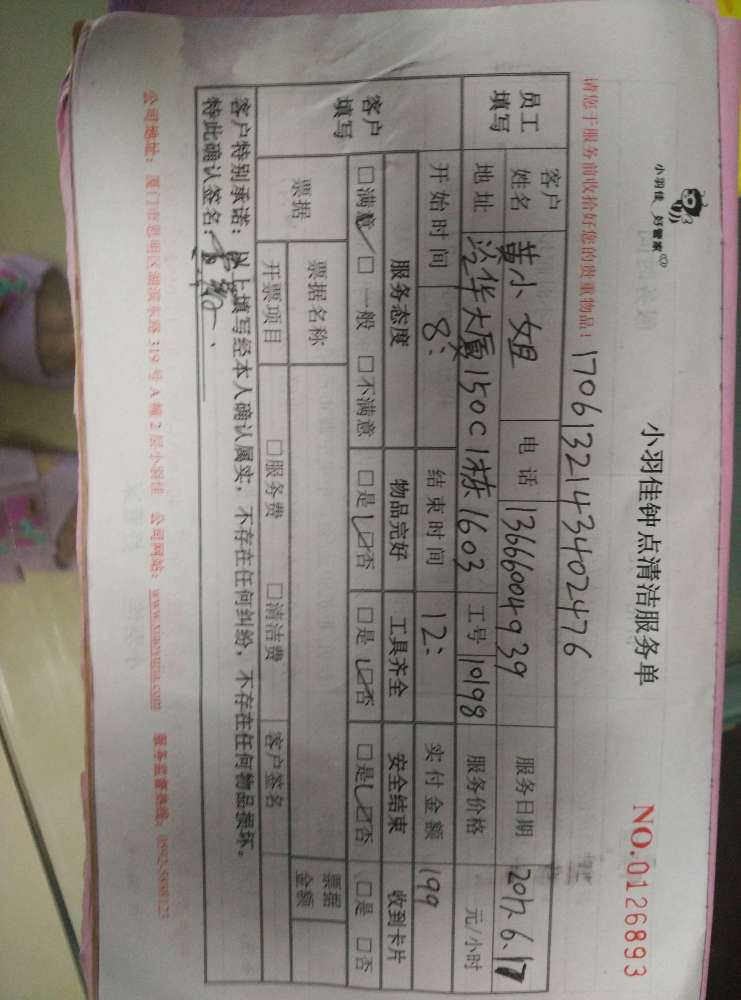 小羽佳 好管家
小羽佳钟点清洁服务单
NO.0126893
请您于服务前收拾好您的贵重物品！
1706132143402476
员工填写
客户姓名 黄小姐 电话 13666004939 服务日期 2017.6.17
地址 大厦150C1栋1603 工号 10198 服务价格 元/小时
客户填写
开始时间 8: 结束时间 12: 实付金额 199
服务态度 物品完好 工具齐全 安全结束 收到卡片
□满意 □一般 □不满意 □是 □否 □是 □否 □是 □否 □是 □否
票据 票据名称 票据金额
开票项目 □服务费 □清洁费 客户签名
客户特别承诺：以上填写经本人确认属实，不存在任何纠纷，不存在任何物品损坏。
特此确认签名：
公司地址：厦门市思明区湖滨东路319号A幢2层小羽佳 公司网站：www.xiaoyujia.com 服务监督热线：